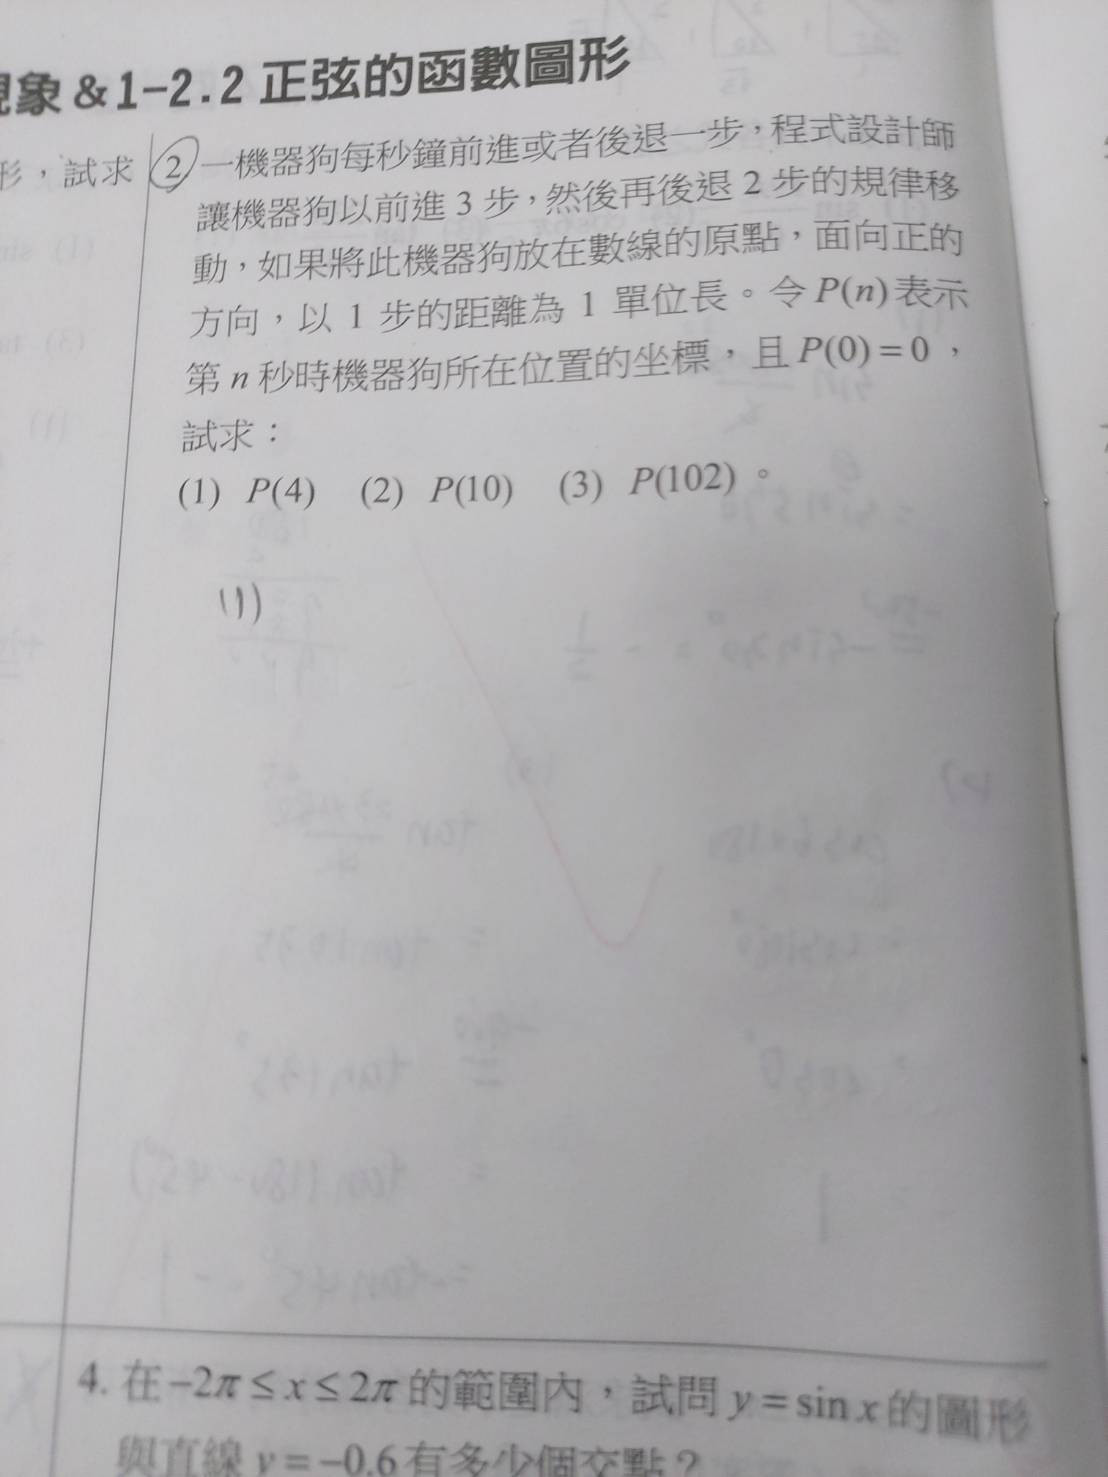 象 & 1-2.2 正弦的函數圖形
形，試求
2 一機器狗每秒鐘前進或者後退一步，程式設計師
讓機器狗以前進 3 步，然後再後退 2 步的規律移
動，如果將此機器狗放在數線的原點，面向正的
方向，以 1 步的距離為 1 單位長。令 P(n) 表示
第 n 秒時機器狗所在位置的坐標，且 P(0) = 0，
試求：
(1) P(4) (2) P(10) (3) P(102)。
(1)
4. 在 -2π ≤ x ≤ 2π 的範圍內，試問 y = sin x 的圖形
與直線 y = -0.6 有多少個交點？